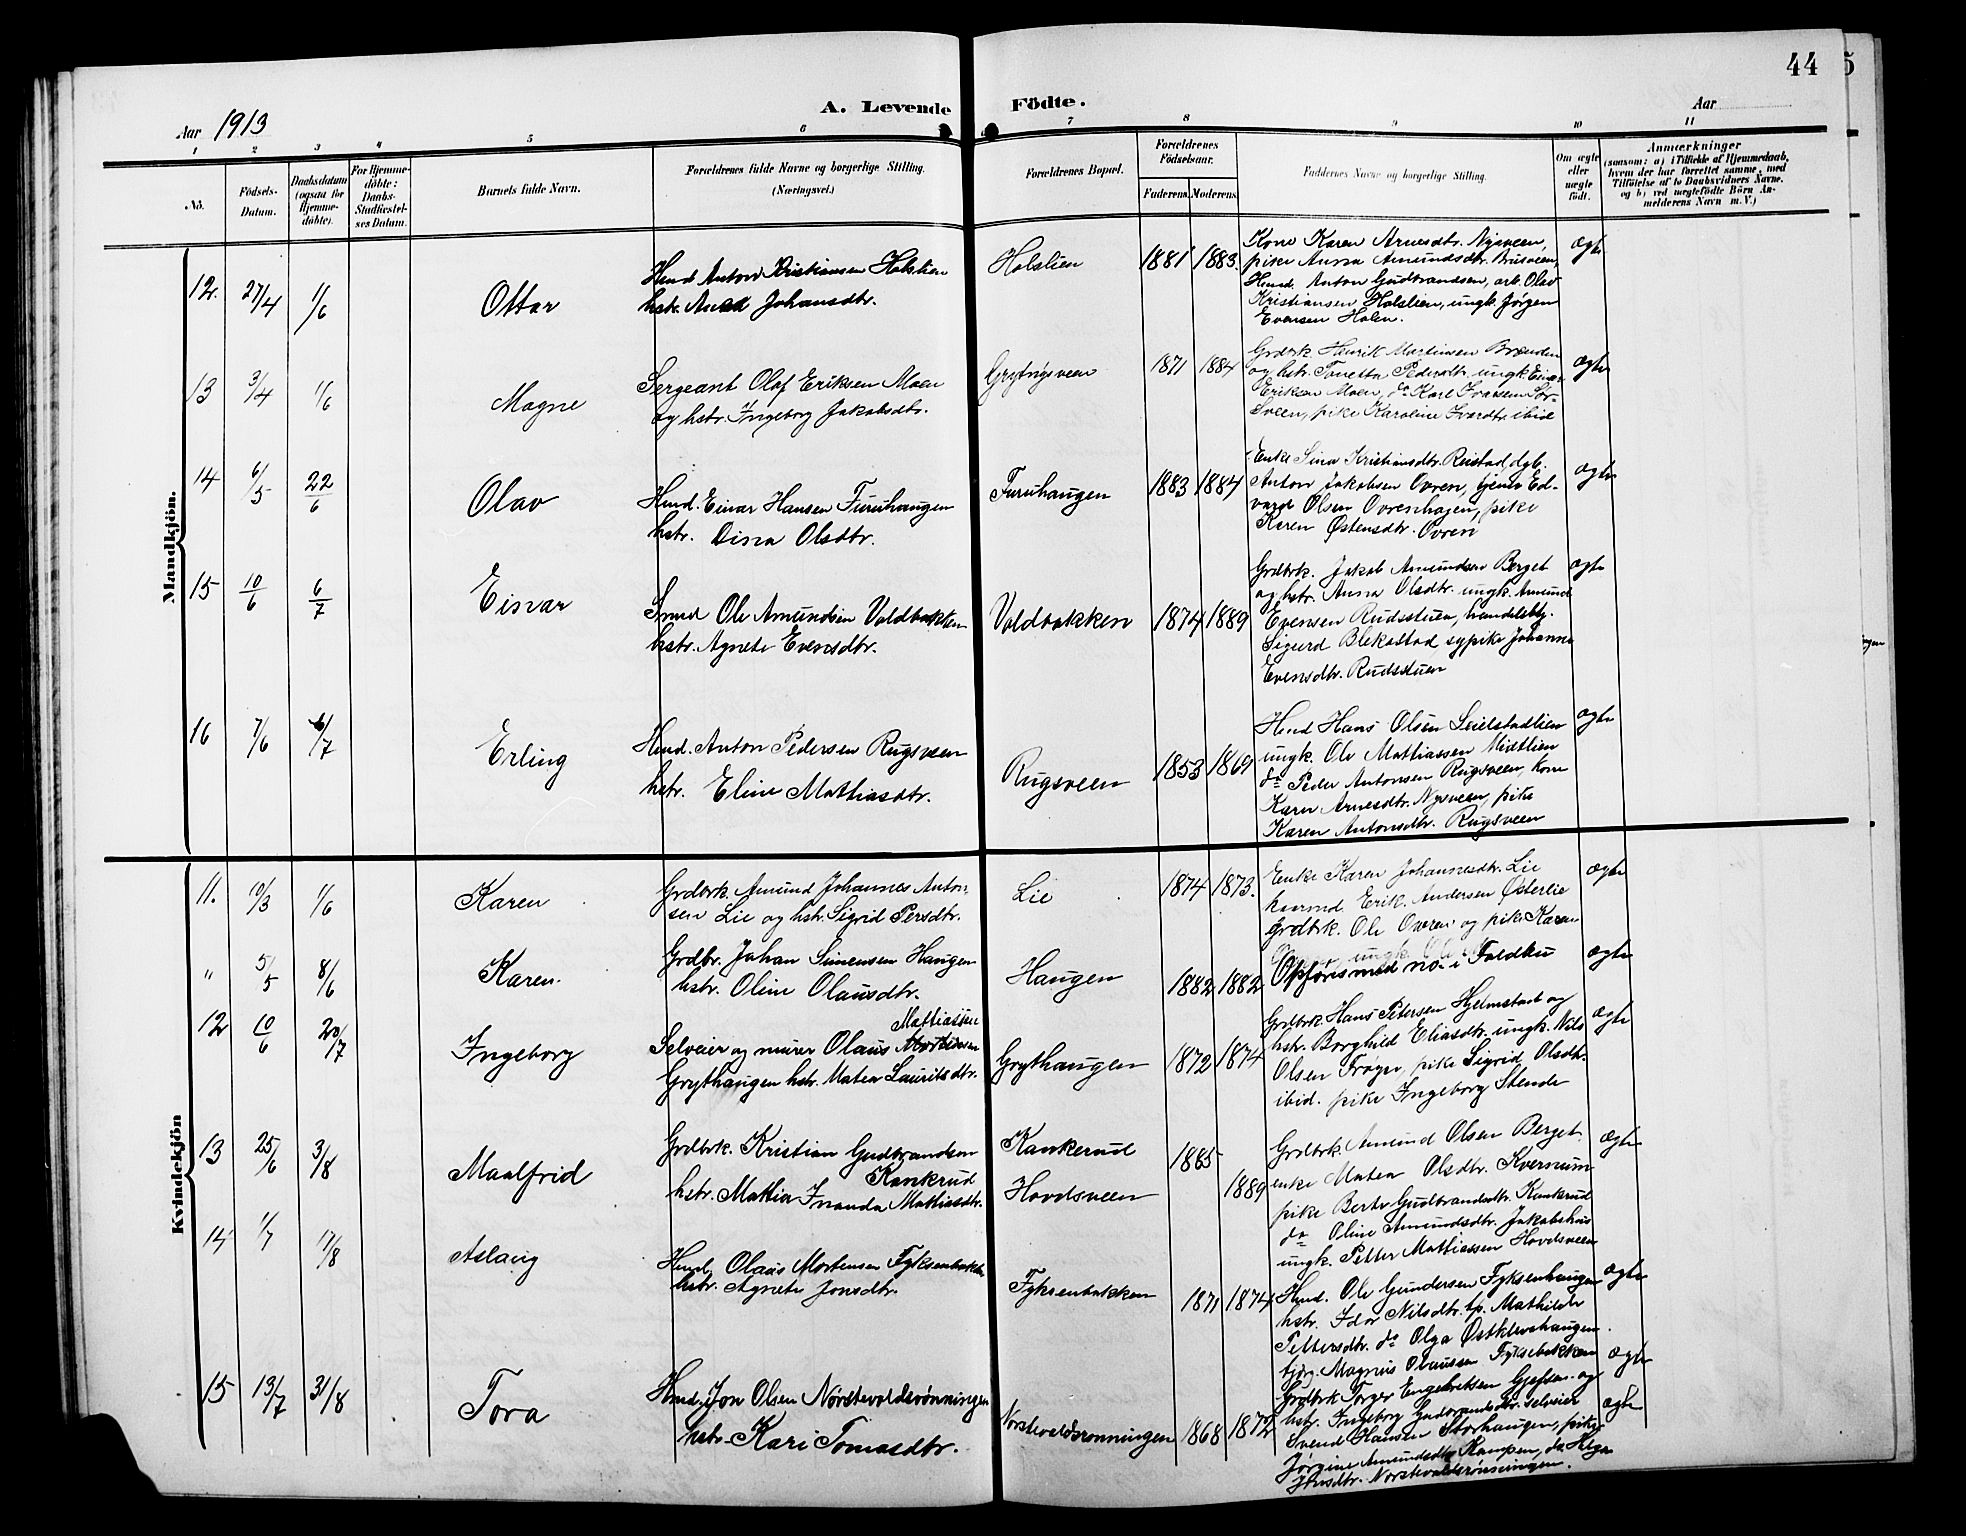 44
5
A. Levende Födte.
Aar 1913
Aar
1 2 3 4 5 6 7 8 9 10 11
No.
Födsels-Datum.
Daabsdatum (ogsaa for Hjemmedöbte).
For Hjemmedöbte: Daabs-Stadfæstelses Datum.
Barnets fulde Navn.
Forældrenes fulde Navne og borgerlige Stilling. (Næringsvei.)
Forældrenes Bopæl.
Forældrenes Födselsaar.
Faderens. Moderens.
Faddernes Navne og borgerlige Stilling.
Om ægte eller uægte födt.
Anmærkninger
(saasom: a) i Tilfælde af Hjemmedaab, hvem der har forrettet samme, med Tilföielse af to Daabsvidners Navne, og b) ved uægtefödte Börn Anmelderens Navn m. V.)
Mandkjön.
12. 27/4 1/6 Ottar
Hmd Anton Kristiansen Holslien
hstr. Anna Johansdtr.
Holslien 1881 1883.
Kone Karen Arnesdtr. Nysveen,
pike Anna Amundsdtr. Brusveen,
Hmd. Anton Gudbrandsen, arb. Olav
Kristiansen Holslien, ungk. Jørgen
Evensen Holen.
ægte
13 3/4 1/6 Magne
Sergeant Olaf Eriksen Moen
og hstr. Ingeborg Jakobsdtr.
Grytingsveen 1871 1884
Grdbrk. Henrik Martinsen Brænden
og hstr. Tonetta Pedersdtr. ungk. Einar
Eriksen Moen, do Karl Ivarsen Sør-
sveen, pike Karoline Ivarsdtr. ibid
ægte
14 6/5 22/6 Olav
Hmd. Einar Hansen Furuhaugen
hstr. Dina Olsdtr.
Furuhaugen 1883 1884
Enke Sina Kristiansdtr. Reistad, dgb.
Anton Jakobsen Ovren, tjener Ed-
vard Olsen Ovrenhagen, pike
Karen Østensdtr. Ovren
ægte
15 10/6 6/7 Einar
Smed Ole Amundsen Voldbakken
hstr. Agnete Evensdtr.
Voldbakken 1874 1889
Grdbrk. Jakob Amundsen Berget
og hstr. Anna Olsdtr. ungk. Amund
Evensen Rudsstuen, handelsbtj.
Sigurd Blekastad sypike Johanne
Evensdtr. Rudsstuen
ægte
16 7/6 6/7 Erling
Hmd. Anton Pedersen Rugsveen
hstr. Eline Mathiasdtr.
Rugsveen 1853 1869
Hmd Hans Olsen Seielstadlien
ungk. Ole Mathiassen Midtlien
do Peder Antonsen Rugsveen, kone
Karen Arnesdtr. Nysveen, pike
Karen Antonsdtr. Rugsveen
ægte
Kvindekjön
11. 10/3 1/6 Karen
Grdbrk. Amund Johannes Anton-
sen Lie og hstr. Sigrid Persdtr.
Lie 1874 1873.
Enke Karen Johannesdtr. Lie
kaarmd. Erik Andersen Østerlie
Grdbrk. Ole Ovren og pike Karen
ægte
" 5/5 8/6 Karen.
Grdbr. Johan Simensen Haugen
hstr. Oline Olausdtr.
Haugen 1882 1882
Opføres med no. i Foldku
ægte
12 10/6 20/7 Ingeborg
Mathiassen
Selveier og murer Olaus Mortensen
Grythaugen hstr. Matea Lauritsdtr.
Grythaugen 1872 1874
Grdbrk. Hans Petersen Hjelmstad og
hstr. Borghild Eliasdtr. ungk. Nils
Olsen Trøger, pike Sigrid Olsdtr.
ibid. pike Ingeborg Stende
ægte
13 25/6 3/8 Maalfrid
Grdbrk. Kristian Gudbrandsen
Kankrud
hstr. Mathia Inanda Mathiasdtr.
Kankerud 1885
Hovdsveen 1889
Grdbrk. Amund Olsen Berget.
enke Matea Olsdtr. Kvernum
pike Berte Gudbrandsdtr. Kankrud
do Oline Amundsdtr. Jakobshus
ungk. Petter Mathiassen Hovdsveen
ægte
14 1/7 17/8 Aslaug
Hmd. Olaus Mortensen Fyksenbakken
hstr. Agnete Jonsdtr.
Fyksenbakken 1871 1874
Hmd. Ole Gundersen Fyksenhaugen
hstr. Ida Nilsdtr. tp. Mathilde
Pettersdtr. do Olga Østklevshaugen.
tjg. Magnus Olaussen Fyksebakken
ægte
15 13/7 31/8 Tora
Hmd. Jon Olsen Norstevoldsrønningen
hstr. Kari Tomasdtr.
Norstevoldsrønningen 1868 1872
Grdbrk. Torger Engebretsen Gjefsen og
hstr. Ingeborg Gudbrandsdtr. selveier
Svend Hansen Storhaugen, pike
Jørgine Amundsdtr. Kampen, do Helga
Jonsdtr. Norstevoldsrønningen.
ægte
ægte